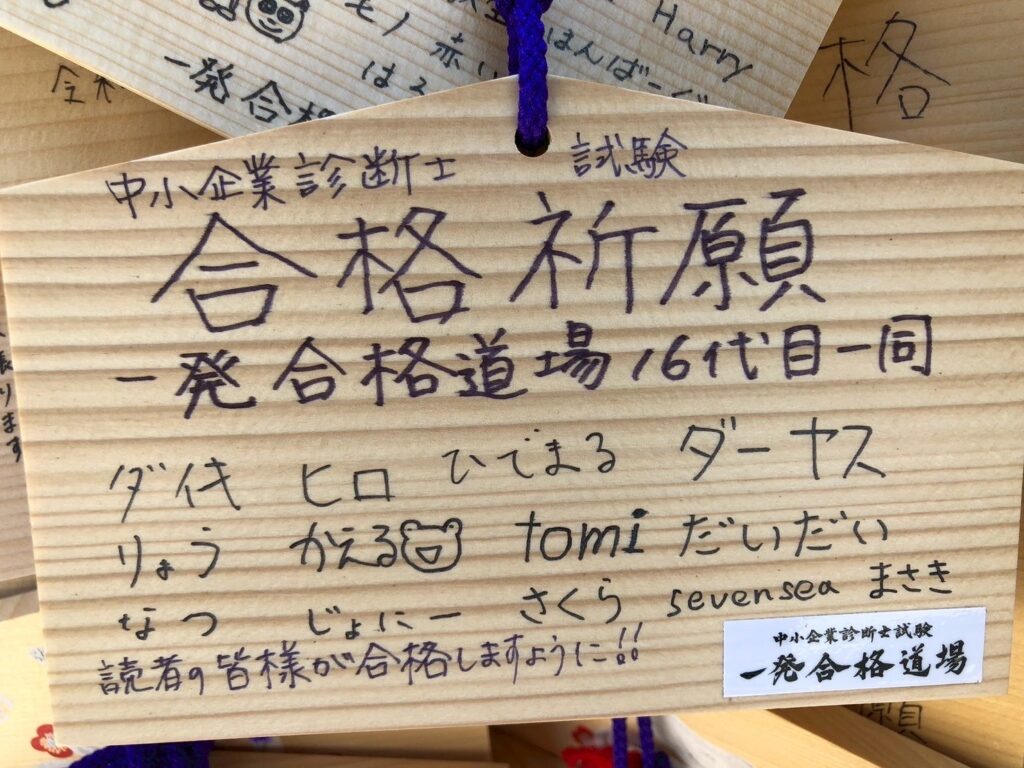 Harry
はんばーぐ
赤
一発合格
格
中小企業診断士 試験
合格祈願
一発合格道場16代目一同
ダイキ ヒロ ひでまる ダーヤス
りょう かえる tomi だいだい
なつ じょにー さくら sevensea まさき
読者の皆様が合格しますように!!
中小企業診断士試験
一発合格道場
ります
願